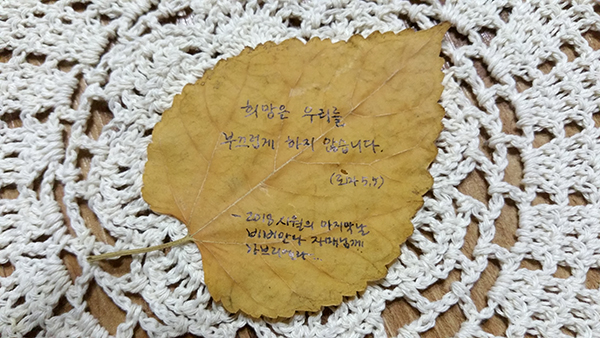 희망은 우리를
부끄럽게 하지 않습니다.
(로마 5,5)
- 2018 시월의 마지막날
비비안나 자매님께